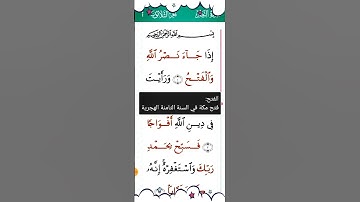 بِسْمِ اللَّهِ الرَّحْمَٰنِ الرَّحِيمِ
إِذَا جَآءَ نَصْرُ اللَّهِ
وَالْفَتْحُ ۝١ وَرَأَيْتَ
الفتح:
فتح مكة في السنة الثامنة الهجرية
فِي دِينِ اللَّهِ أَفْوَاجًا
۝٢ فَسَبِّحْ بِحَمْدِ
رَبِّكَ وَاسْتَغْفِرْهُ ۚ إِنَّهُۥ